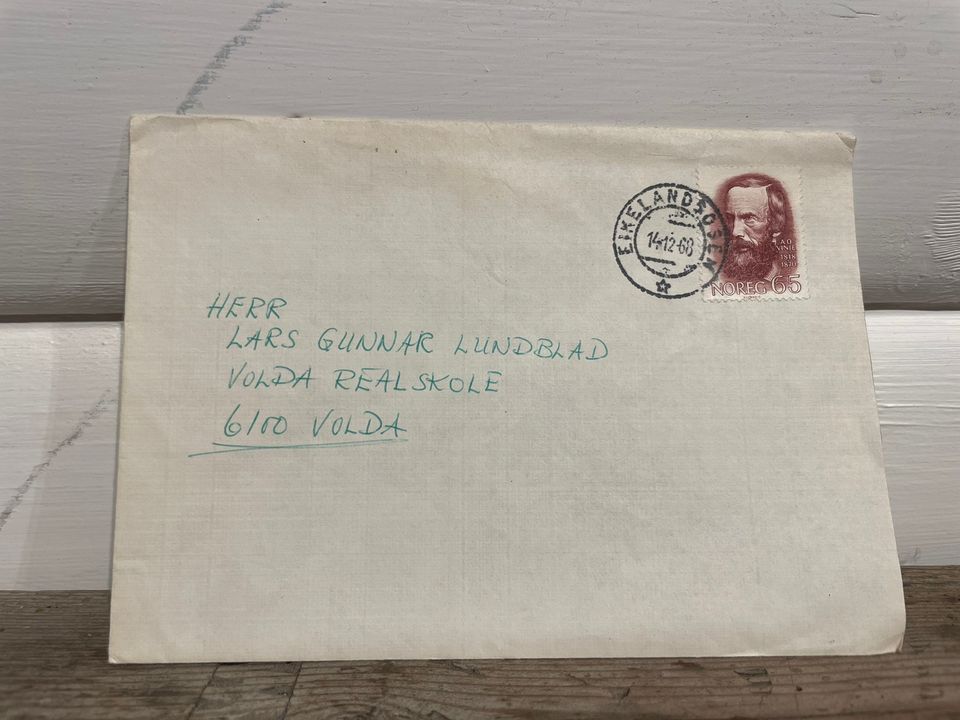 EIKELANDSOSEN
14-12-68
A.O.
VINJE
1818
1870
NOREG 65
HERR
LARS GUNNAR LUNDBLAD
VOLDA REALSKOLE
6100 VOLDA